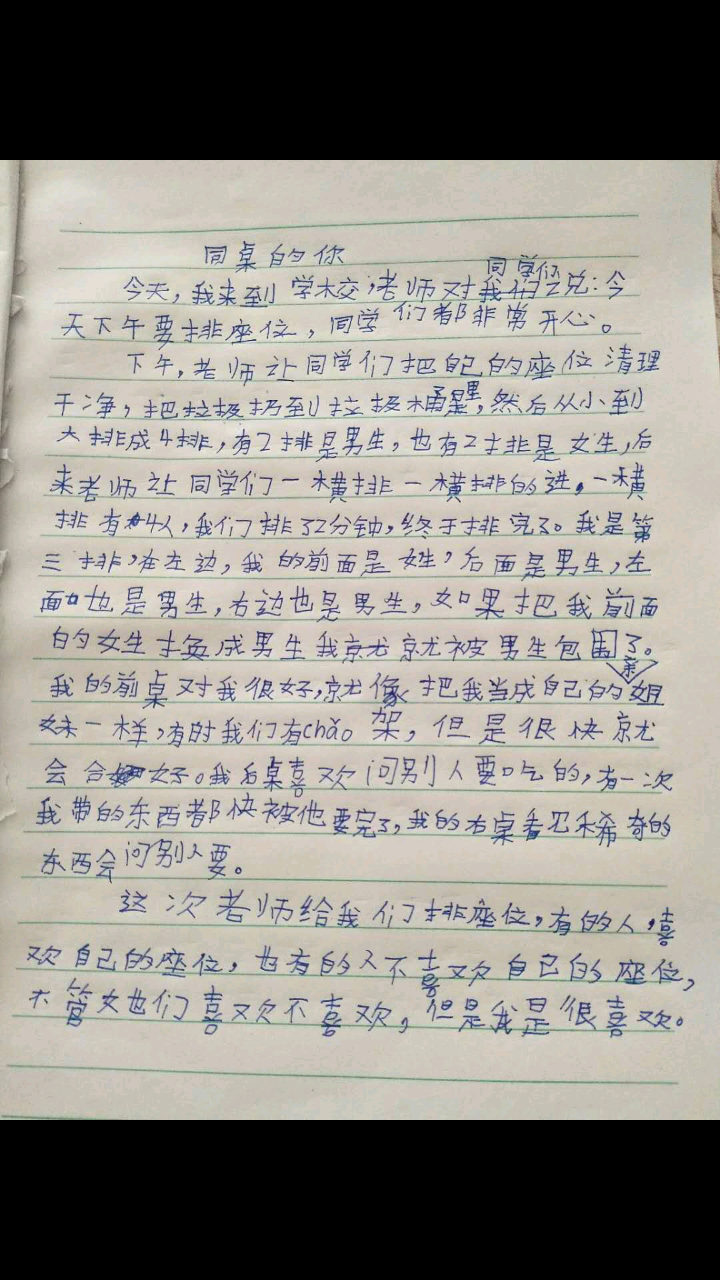 同桌的你
同学们
今天，我来到学校，老师对我们说：今
天下午要排座位，同学们都非常开心。
下午，老师让同学们把自己的座位清理
干净，把垃圾扔到垃圾桶里，然后从小到
大排成4排，有2排是男生，也有2排是女生，后
来老师让同学们一横排一横排的进。一横
排有4人，我们排了2分钟，终于排完了。我是第
三排，在左边，我的前面是女生，后面是男生，左
面也是男生，右边也是男生，如果把我前面
的女生换成男生我就就被男生包围了。
亲
我的前桌对我很好，就像把我当成自己的姐
妹一样，有时我们有chǎo架，但是很快就
会合好。我后桌喜欢问别人要吃的，有一次
我带的东西都快被他要完了，我的右桌看见稀奇的
东西会问别人要。
这次老师给我们排座位，有的人，喜
欢自己的座位，也有的人不喜欢自己的座位，
不管他们喜欢不喜欢，但是我是很喜欢。